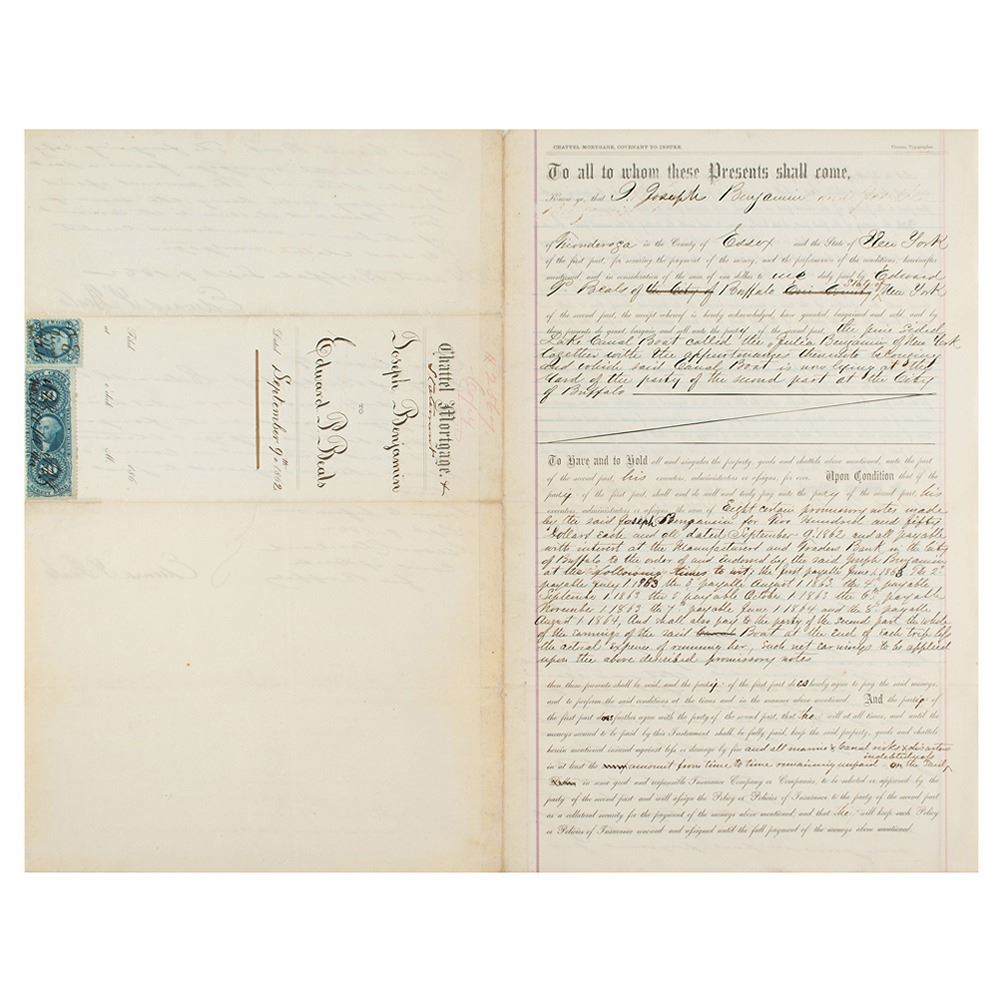 Chattel Mortgage, &
Statement
Joseph Benjamin
TO
Edward P. Beals
Dated September 9th 1862
Filed 186
at o'clock M.
CHATTEL MORTGAGE, COVENANT TO INSURE.
To all to whom these Presents shall come,
Know ye, that I, Joseph Benjamin
of Ticonderoga in the County of Essex and the State of New York
of the first part, for securing the payment of the money, and the performance of the conditions, hereinafter
mentioned, and in consideration of the sum of one dollar to me duly paid by Edward
P. Beals of the City of Buffalo Erie County State of New York
of the second part, the receipt whereof is hereby acknowledged, have granted bargained and sold and by
these presents do grant, bargain and sell unto the party of the second part, the
Lake Canal Boat called the "Julia Benjamin of New York
together with the appurtenances thereunto belonging
and which said Canal Boat is now lying at the
Yard of the party of the second part at the City
of Buffalo
To Have and to Hold all and singular the property, goods and chattels above mentioned, unto the part
of the second part, his executors, administrators or assigns, for ever. Upon Condition that if the
party of the first part shall and do well and truly pay unto the party of the second part, his
executors administrators or assigns, the sum of Eight certain promissory notes made
by the said Joseph Benjamin for Two Hundred and fifty
Dollars each and all dated September 9. 1862 and all payable
with interest at the Manufacturers and Traders Bank in the City
of Buffalo to the order of and endorsed by the said Joseph Benjamin
at the following times to wit the first payable June 1. 1863 the 2d
payable July 1. 1863 the 3d payable August 1. 1863 the 4th payable
September 1. 1863 the 5 payable October 1. 1863 the 6th payable
November 1. 1863 the 7th payable June 1. 1864, and the 8th payable
August 1. 1864, And shall also pay to the party of the second part the whole
of the earnings of the said Canal Boat at the End of each trip less
the actual expense of running her, such net earnings to be applied
upon the above described promissory notes
then these presents shall be void, and the party of the first part does hereby agree to pay the said moneys,
and to perform the said conditions at the times and in the manner above mentioned. And the party of
the first part does further agree with the party of the second part, that he will at all times, and until the
moneys secured to be paid by this Instrument shall be fully paid, keep the said property, goods and chattels
herein mentioned insured against loss or damage by fire and all marine & Canal risks & disasters
in at least the amount from time to time remaining unpaid on the said indebtedness
in some good and responsible Insurance Company or Companies, to be selected or approved by the
party of the second part and will assign the Policy or Policies of Insurance to the party of the second part
as a collateral security for the payment of the moneys above mentioned, and that he will keep such Policy
or Policies of Insurance renewed and assigned until the full payment of the moneys above mentioned.